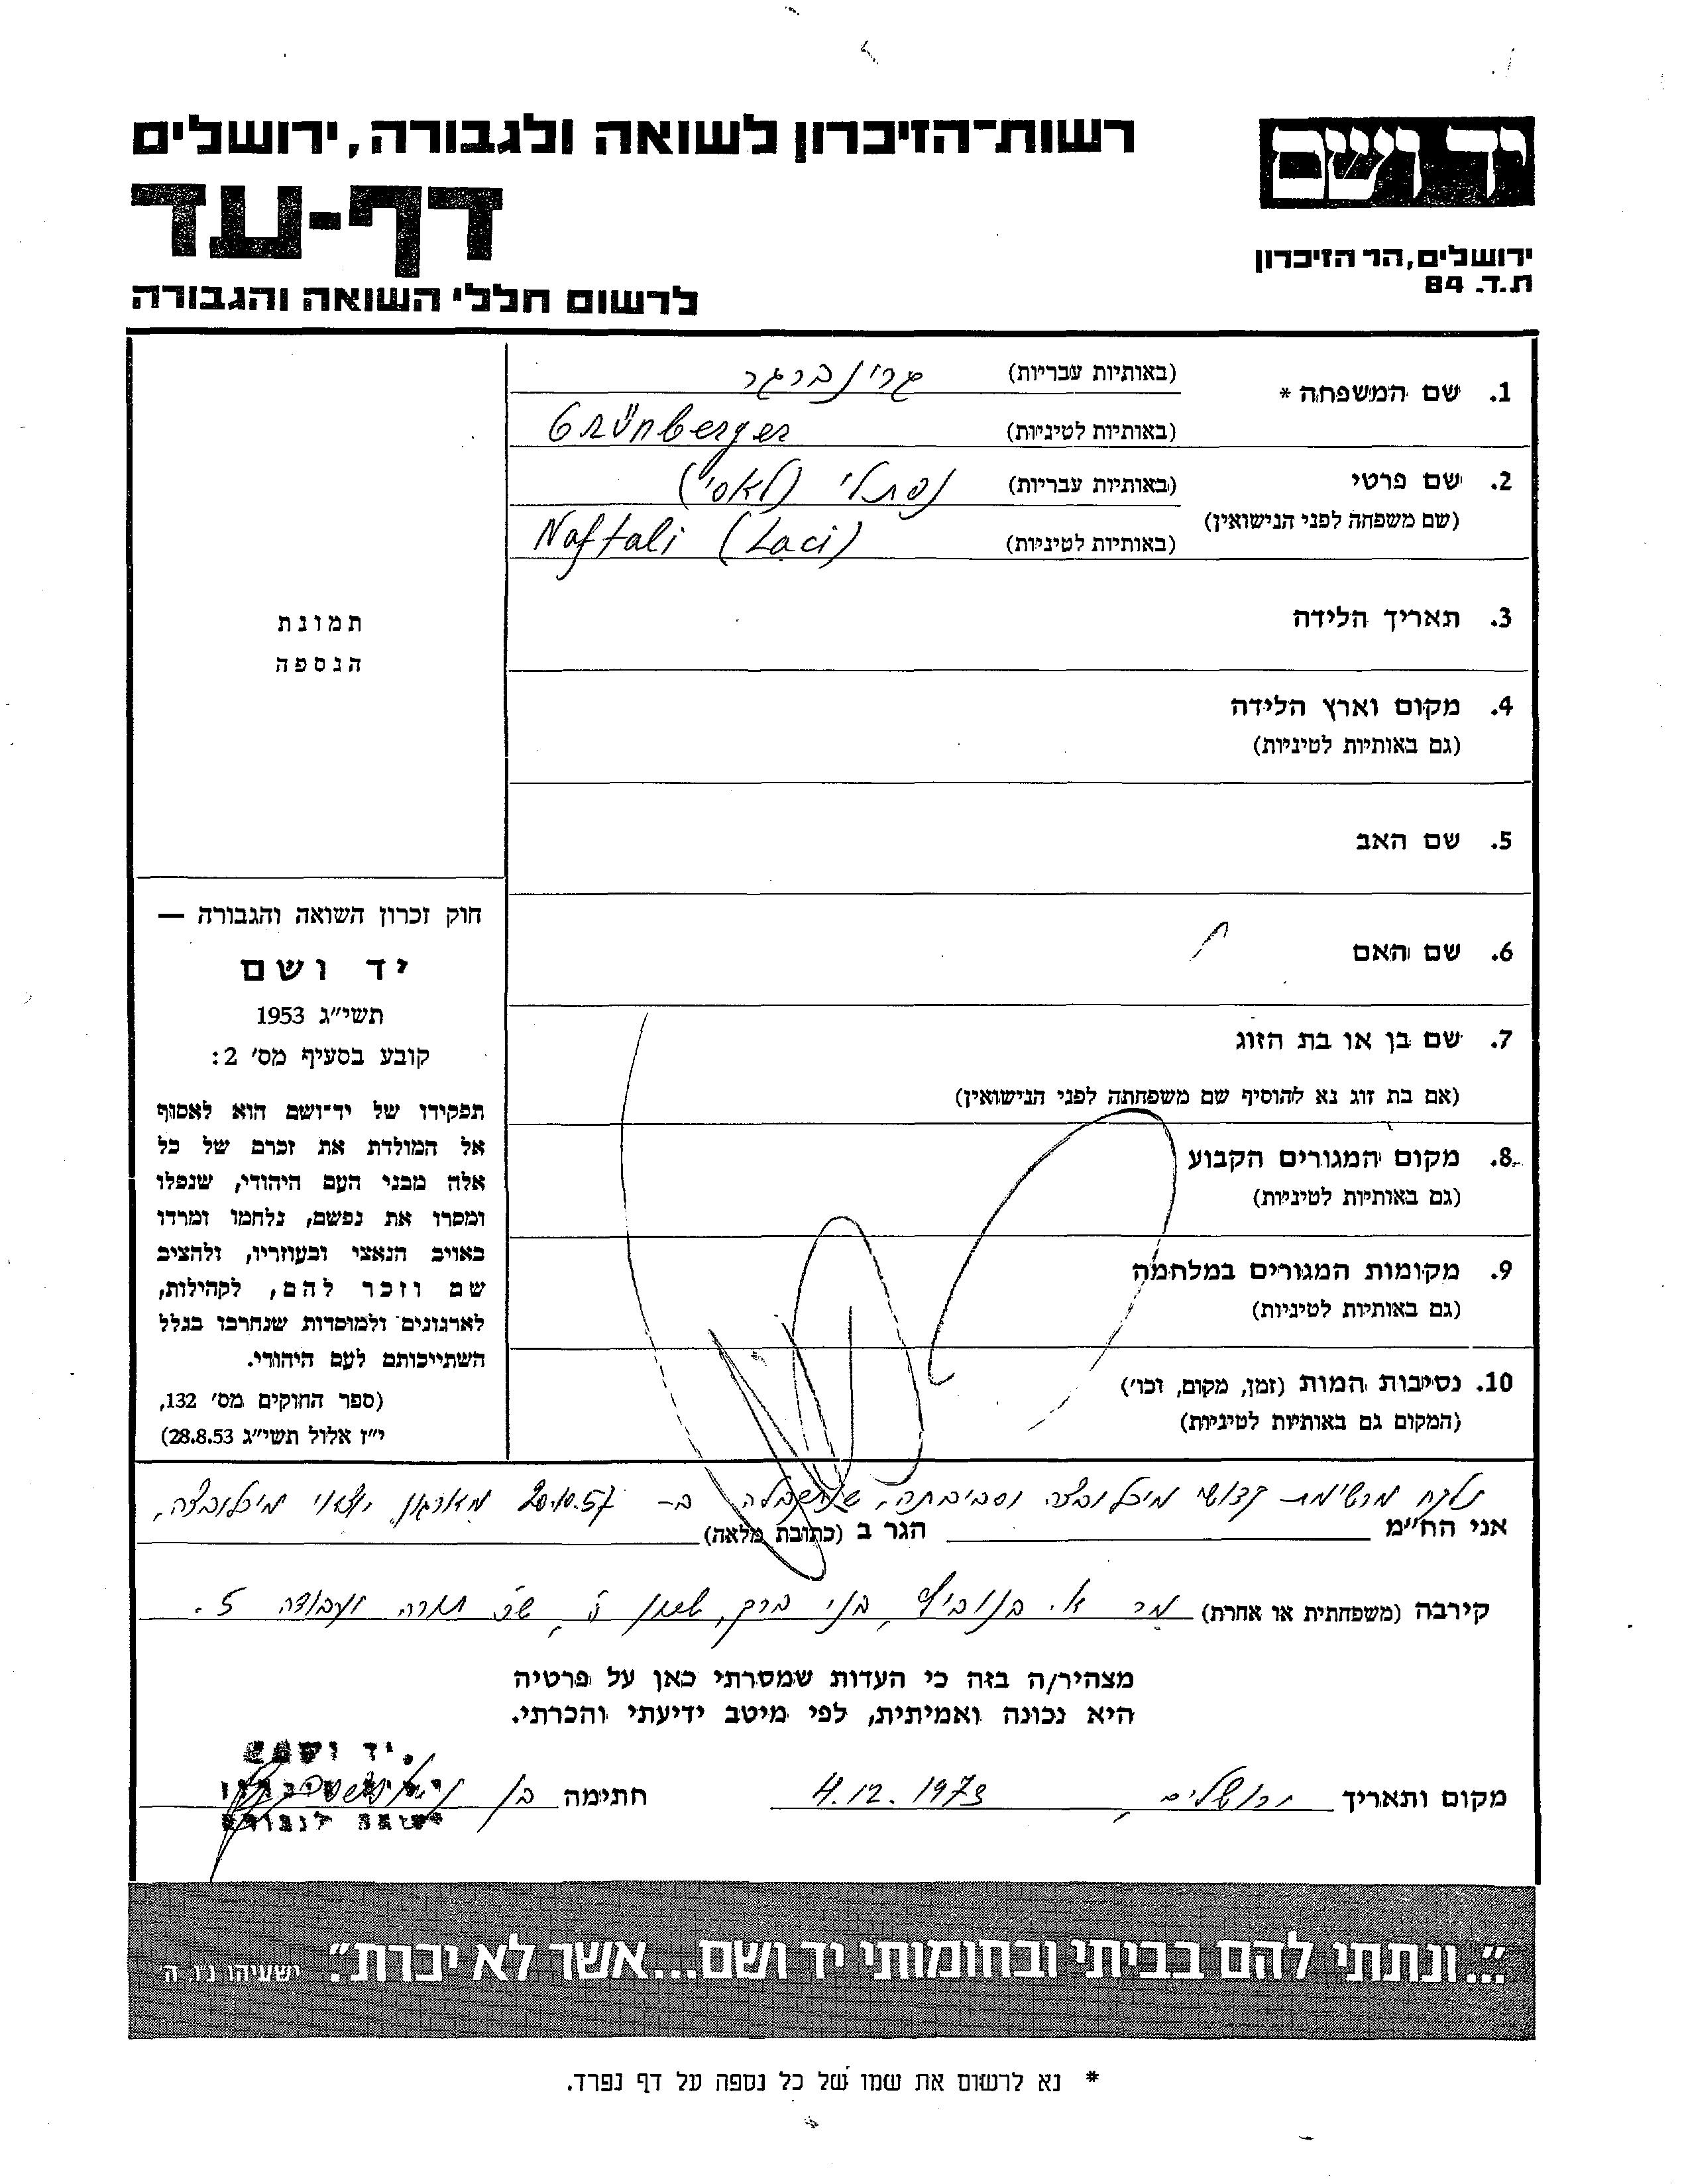 רשות־הזיכרון לשואה ולגבורה, ירושלים
יד ושם
דף-עד
ירושלים, הר הזיכרון
ת.ד. 84
לרשום חללי השואה והגבורה
1. שם המשפחה * (באותיות עבריות) גרינברגר
(באותיות לטיניות) Grünberger
2. שם פרטי (באותיות עבריות) נפתלי (לאסי)
(שם משפחה לפני הנישואין) (באותיות לטיניות) Naftali (Laci)
3. תאריך הלידה
4. מקום וארץ הלידה
(גם באותיות לטיניות)
5. שם האב
6. שם האם
7. שם בן או בת הזוג
(אם בת זוג נא להוסיף שם משפחתה לפני הנישואין)
8. מקום המגורים הקבוע
(גם באותיות לטיניות)
9. מקומות המגורים במלחמה
(גם באותיות לטיניות)
10. נסיבות המות (זמן, מקום, וכו')
(המקום גם באותיות לטיניות)
תמונת
הנספה
חוק זכרון השואה והגבורה —
יד ושם
תשי"ג 1953
קובע בסעיף מס' 2:
תפקידו של יד־ושם הוא לאסוף
אל המולדת את זכרם של כל
אלה מבני העם היהודי, שנפלו
ומסרו את נפשם, נלחמו ומרדו
באויב הנאצי ובעוזריו, ולהציב
שם וזכר להם, לקהילות,
לארגונים ולמוסדות שנחרבו בגלל
השתייכותם לעם היהודי.
(ספר החוקים מס' 132,
י"ז אלול תשי"ג 28.8.53)
נלקח מרשימת קדושי מיכלובצה וסביבתה, שנתקבלה ב- 20.10.57 מארגון יוצאי מיכלובצה,
אני הח"מ הגר ב (כתובת מלאה)
קירבה (משפחתית או אחרת) מר א. בני ברק, שכ' תורה ועבודה 5.
מצהיר/ה בזה כי העדות שמסרתי כאן על פרטיה
היא נכונה ואמיתית, לפי מיטב ידיעתי והכרתי.
יד ושם
מקום ותאריך ירושלים, 4.12.1973 חתימה
"...ונתתי להם בביתי ובחומותי יד ושם...אשר לא יכרת". ישעיהו נ"ו, ה'
* נא לרשום את שמו של כל נספה על דף נפרד.